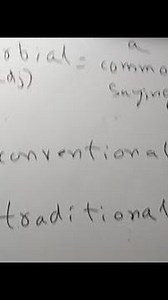 obial = a
adj) commo
saying
conventional
traditional